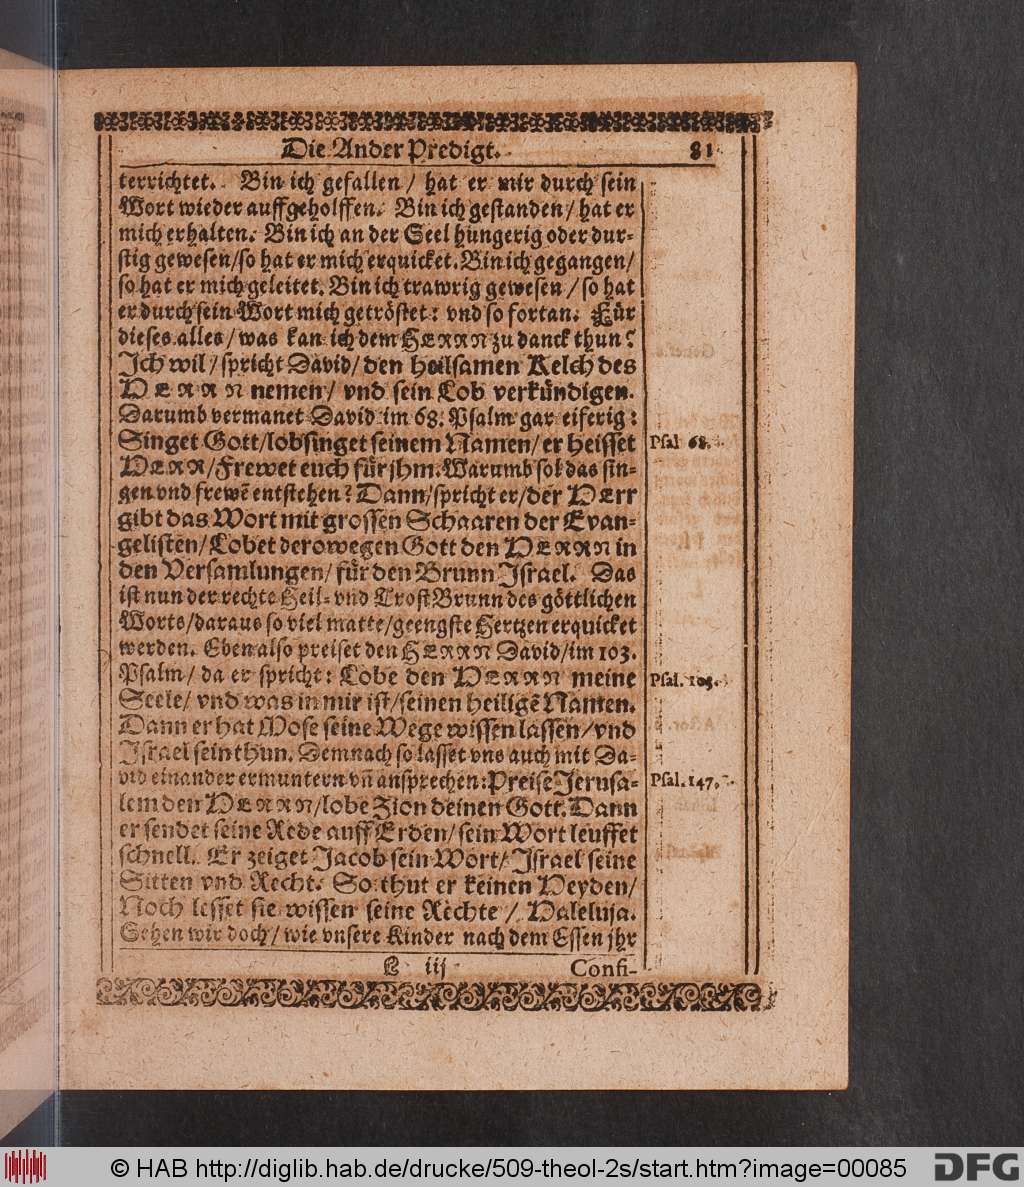 Die Ander Predigt. 81
terrichtet. Bin ich gefallen / hat er mir durch sein
Wort wieder auffgeholffen. Bin ich gestanden / hat er
mich erhalten. Bin ich an der Seel hungerig oder dur-
stig gewesen/so hat er mich erquicket. Bin ich gegangen/
so hat er mich geleitet. Bin ich trawrig gewesen / so hat
er durch sein Wort mich getröstet: vnd so fortan. Für
dieses alles / was kan ich dem HERRN zu danck thun?
Ich wil / spricht David / den heilsamen Kelch des
HERRN nemen / vnd sein Lob verkündigen.
Darumb vermanet David im 68. Psalm gar eiferig:
Singet Gott/lobsinget seinem Namen/er heisset
Psal 68.
HERR/Frewet euch für jhm. Warumb sol das sin-
gen vnd frewē entstehen? Dann/spricht er/der HErr
gibt das Wort mit grossen Schaaren der Evan-
gelisten/Lobet derowegen Gott den HERRN in
den Versamlungen/ für den Brunn Israel. Das
ist nun der rechte Heil- vnd Trost Brunn des göttlichen
Worts/daraus so viel matte/geengste Hertzen erquicket
werden. Eben also preiset den HERRN David/im 103.
Psalm / da er spricht: Lobe den HERRN meine
Psal. 103.
Seele/ vnd was in mir ist/seinen heiligē Namen.
Dann er hat Mose seine Wege wissen lassen/vnd
Israel sein thun. Demnach so lasset vns auch mit Da-
vid einander ermuntern vñ ansprechen: Preise Jerusa-
Psal. 147.
lem den HERRN/lobe Zion deinen Gott. Dann
er sendet seine Rede auff Erden/sein Wort leuffet
schnell. Er zeiget Jacob sein Wort/ Israel seine
Sitten vnd Recht. So thut er keinen Heyden/
Noch lesset sie wissen seine Rechte / Haleluja.
Sehen wir doch / wie vnsere Kinder nach dem Essen jhr
L iij Confi-
© HAB http://diglib.hab.de/drucke/509-theol-2s/start.htm?image=00085
DFG